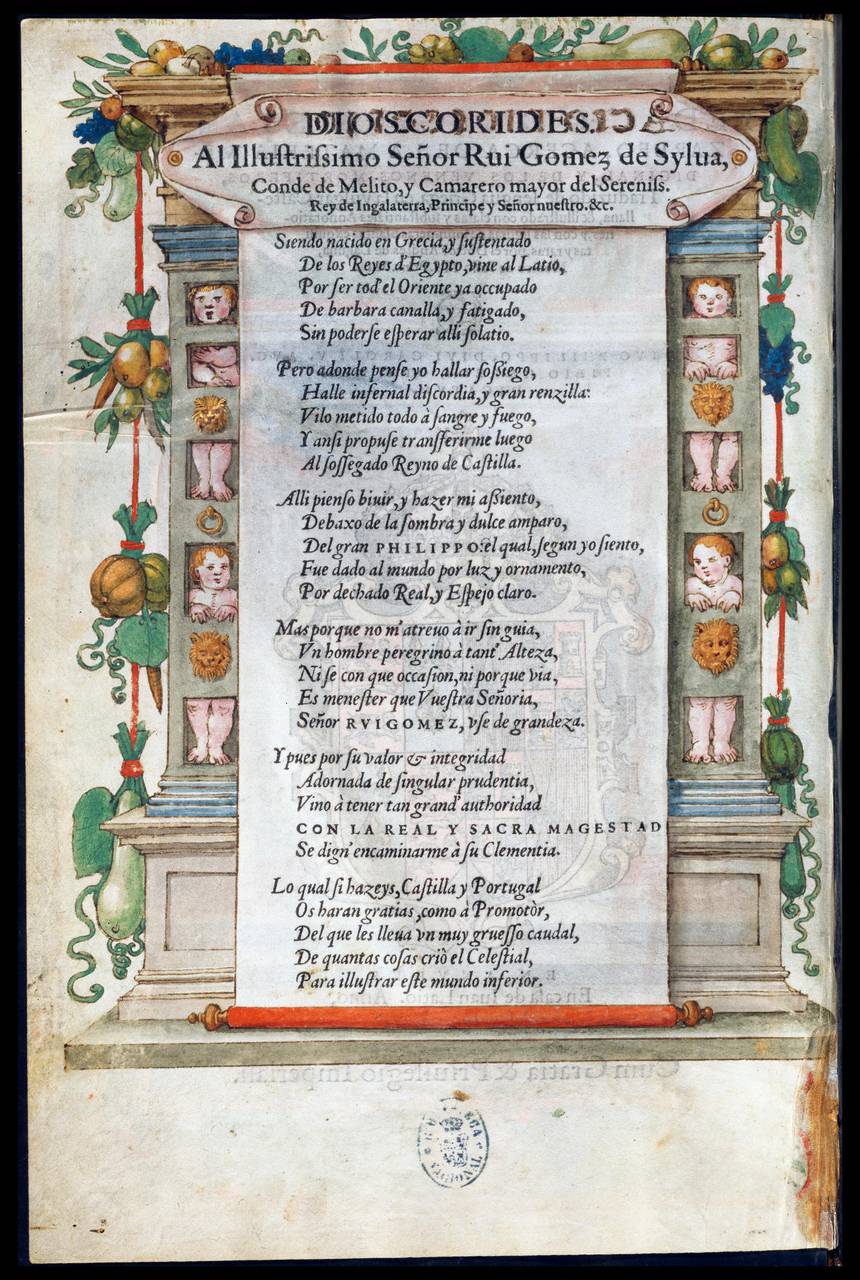 DIOSCORIDES.
Al Illustrissimo Señor Rui Gomez de Sylua,
Conde de Melito, y Camarero mayor del Sereniss.
Rey de Ingalaterra, Principe y Señor nuestro. &c.
Siendo nacido en Grecia, y sustentado
De los Reyes d'Egypto, vine al Latio,
Por ser tod'el Oriente ya occupado
De barbara canalla, y fatigado,
Sin poderse esperar alli solatio.
Pero adonde pense yo hallar sossiego,
Halle infernal discordia, y gran renzilla:
Vilo metido todo à sangre y fuego,
Y ansi propuse transferirme luego
Al sossegado Reyno de Castilla.
Alli pienso biuir, y hazer mi assiento,
Debaxo de la sombra y dulce amparo,
Del gran PHILIPPO: el qual, segun yo siento,
Fue dado al mundo por luz y ornamento,
Por dechado Real, y Espejo claro.
Mas porque no m'atreuo à ir sin guia,
Vn hombre peregrino à tant'Alteza,
Ni se con que occasion, ni por que via,
Es menester que Vuestra Señoria,
Señor RVI GOMEZ, vse de grandeza.
Y pues por su valor & integridad
Adornada de singular prudentia,
Vino à tener tan grand'authoridad
CON LA REAL Y SACRA MAGESTAD
Se dign'encaminarme à su Clementia.
Lo qual si hazeys, Castilla y Portugal
Os haran gratias, como à Promotòr,
Del que les lleua vn muy gruesso caudal,
De quantas cosas criò el Celestial,
Para illustrar este mundo inferior.
En casa de Iuan Latio. Anno.
Cum Gratia & Priuilegio Imperiali.